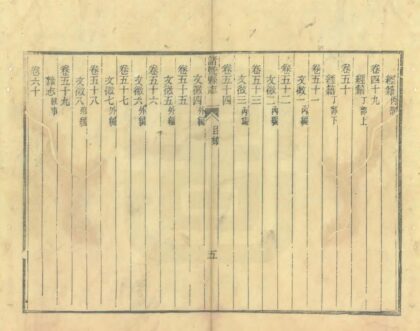 經籍丙部
卷四十九
經籍丁部上
卷五十
經籍丁部下
卷五十一
文徵一內編
卷五十二
文徵二內編
卷五十三
文徵三內編
卷五十四
諸暨縣志 目錄 五
文徵四外編
卷五十五
文徵五外編
卷五十六
文徵六外編
卷五十七
文徵七外編
卷五十八
文徵八外編
卷五十九
雜志軼事
卷六十